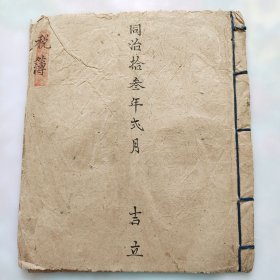 税簿
同治拾叁年弍月 吉立